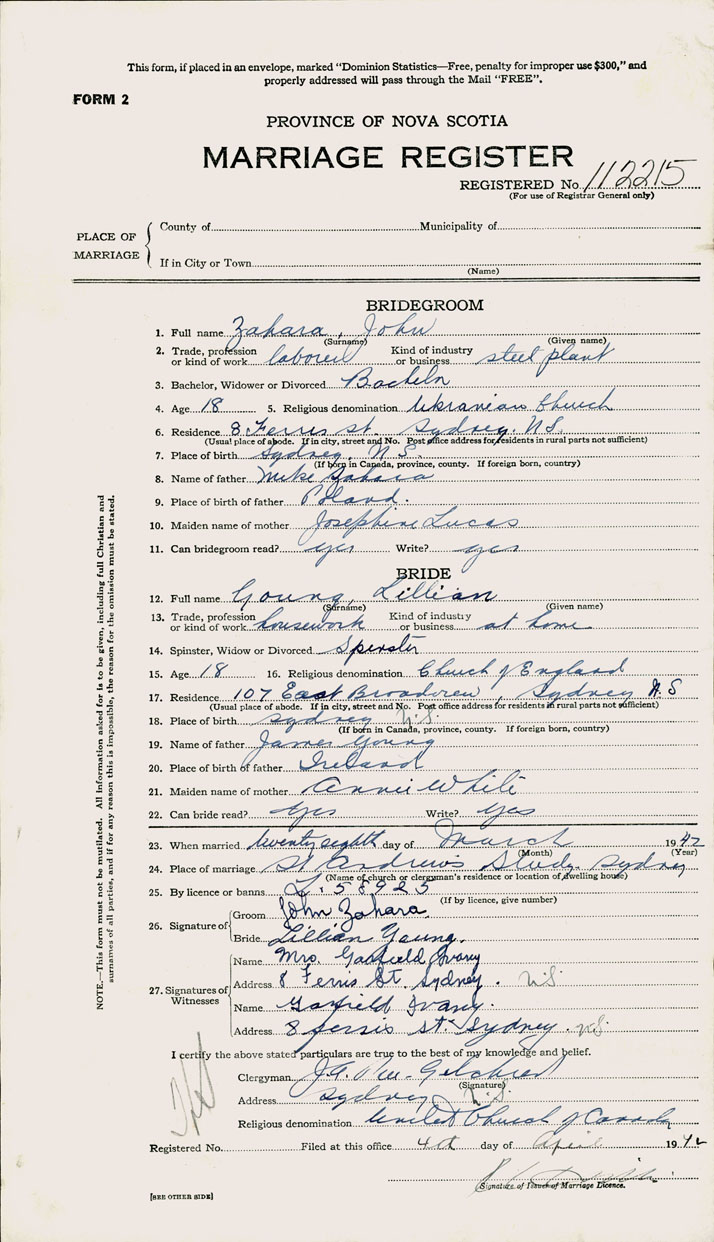 This form, if placed in an envelope, marked "Dominion Statistics—Free, penalty for improper use $300," and
properly addressed will pass through the Mail "FREE".
FORM 2
PROVINCE OF NOVA SCOTIA
MARRIAGE REGISTER
REGISTERED No. 112215
(For use of Registrar General only)
PLACE OF MARRIAGE
County of Municipality of
If in City or Town
(Name)
BRIDEGROOM
1. Full name Zahara, John
(Surname) (Given name)
2. Trade, profession or kind of work laborer Kind of industry or business steel plant
3. Bachelor, Widower or Divorced Bachelor
4. Age 18 5. Religious denomination Ukranian Church
6. Residence 8 Ferris st. Sydney. N.S.
(Usual place of abode. If in city, street and No. Post office address for residents in rural parts not sufficient)
7. Place of birth Sydney, N.S.
(If born in Canada, province, county. If foreign born, country)
8. Name of father Mike Zahara
9. Place of birth of father Poland.
10. Maiden name of mother Josephine Lucas
11. Can bridegroom read? yes Write? yes
BRIDE
12. Full name Young, Lillian
(Surname) (Given name)
13. Trade, profession or kind of work housework Kind of industry or business at home
14. Spinster, Widow or Divorced Spinster
15. Age 18 16. Religious denomination Church of England
17. Residence 107 East Broadview, Sydney N.S
(Usual place of abode. If in city, street and No. Post office address for residents in rural parts not sufficient)
18. Place of birth Sydney N.S.
(If born in Canada, province, county. If foreign born, country)
19. Name of father James Young
20. Place of birth of father Ireland
21. Maiden name of mother Annie White
22. Can bride read? Yes Write? Yes
23. When married twenty eighth day of March 1942
(Month) (Year)
24. Place of marriage St Andrew's Study. Sydney
(Name of church or clergyman's residence or location of dwelling house)
25. By licence or banns L. 58925
(If by licence, give number)
26. Signature of
Groom John Zahara
Bride Lillian Young.
27. Signatures of Witnesses
Name Mrs. Garfield Ivany
Address 8 Ferris St. Sydney. N.S.
Name Garfield Ivany.
Address 8 ferris st. Sydney. N.S.
I certify the above stated particulars are true to the best of my knowledge and belief.
Clergyman
(Signature)
Address Sydney N.S.
Religious denomination United Church of Canada
Registered No. Filed at this office 4th day of April 1942
Signature of Issuer of Marriage Licence.
[SEE OTHER SIDE]
NOTE.—This form must not be mutilated. All Information asked for is to be given, including full Christian and
surnames of all parties, and if for any reason this is impossible, the reason for the omission must be stated.